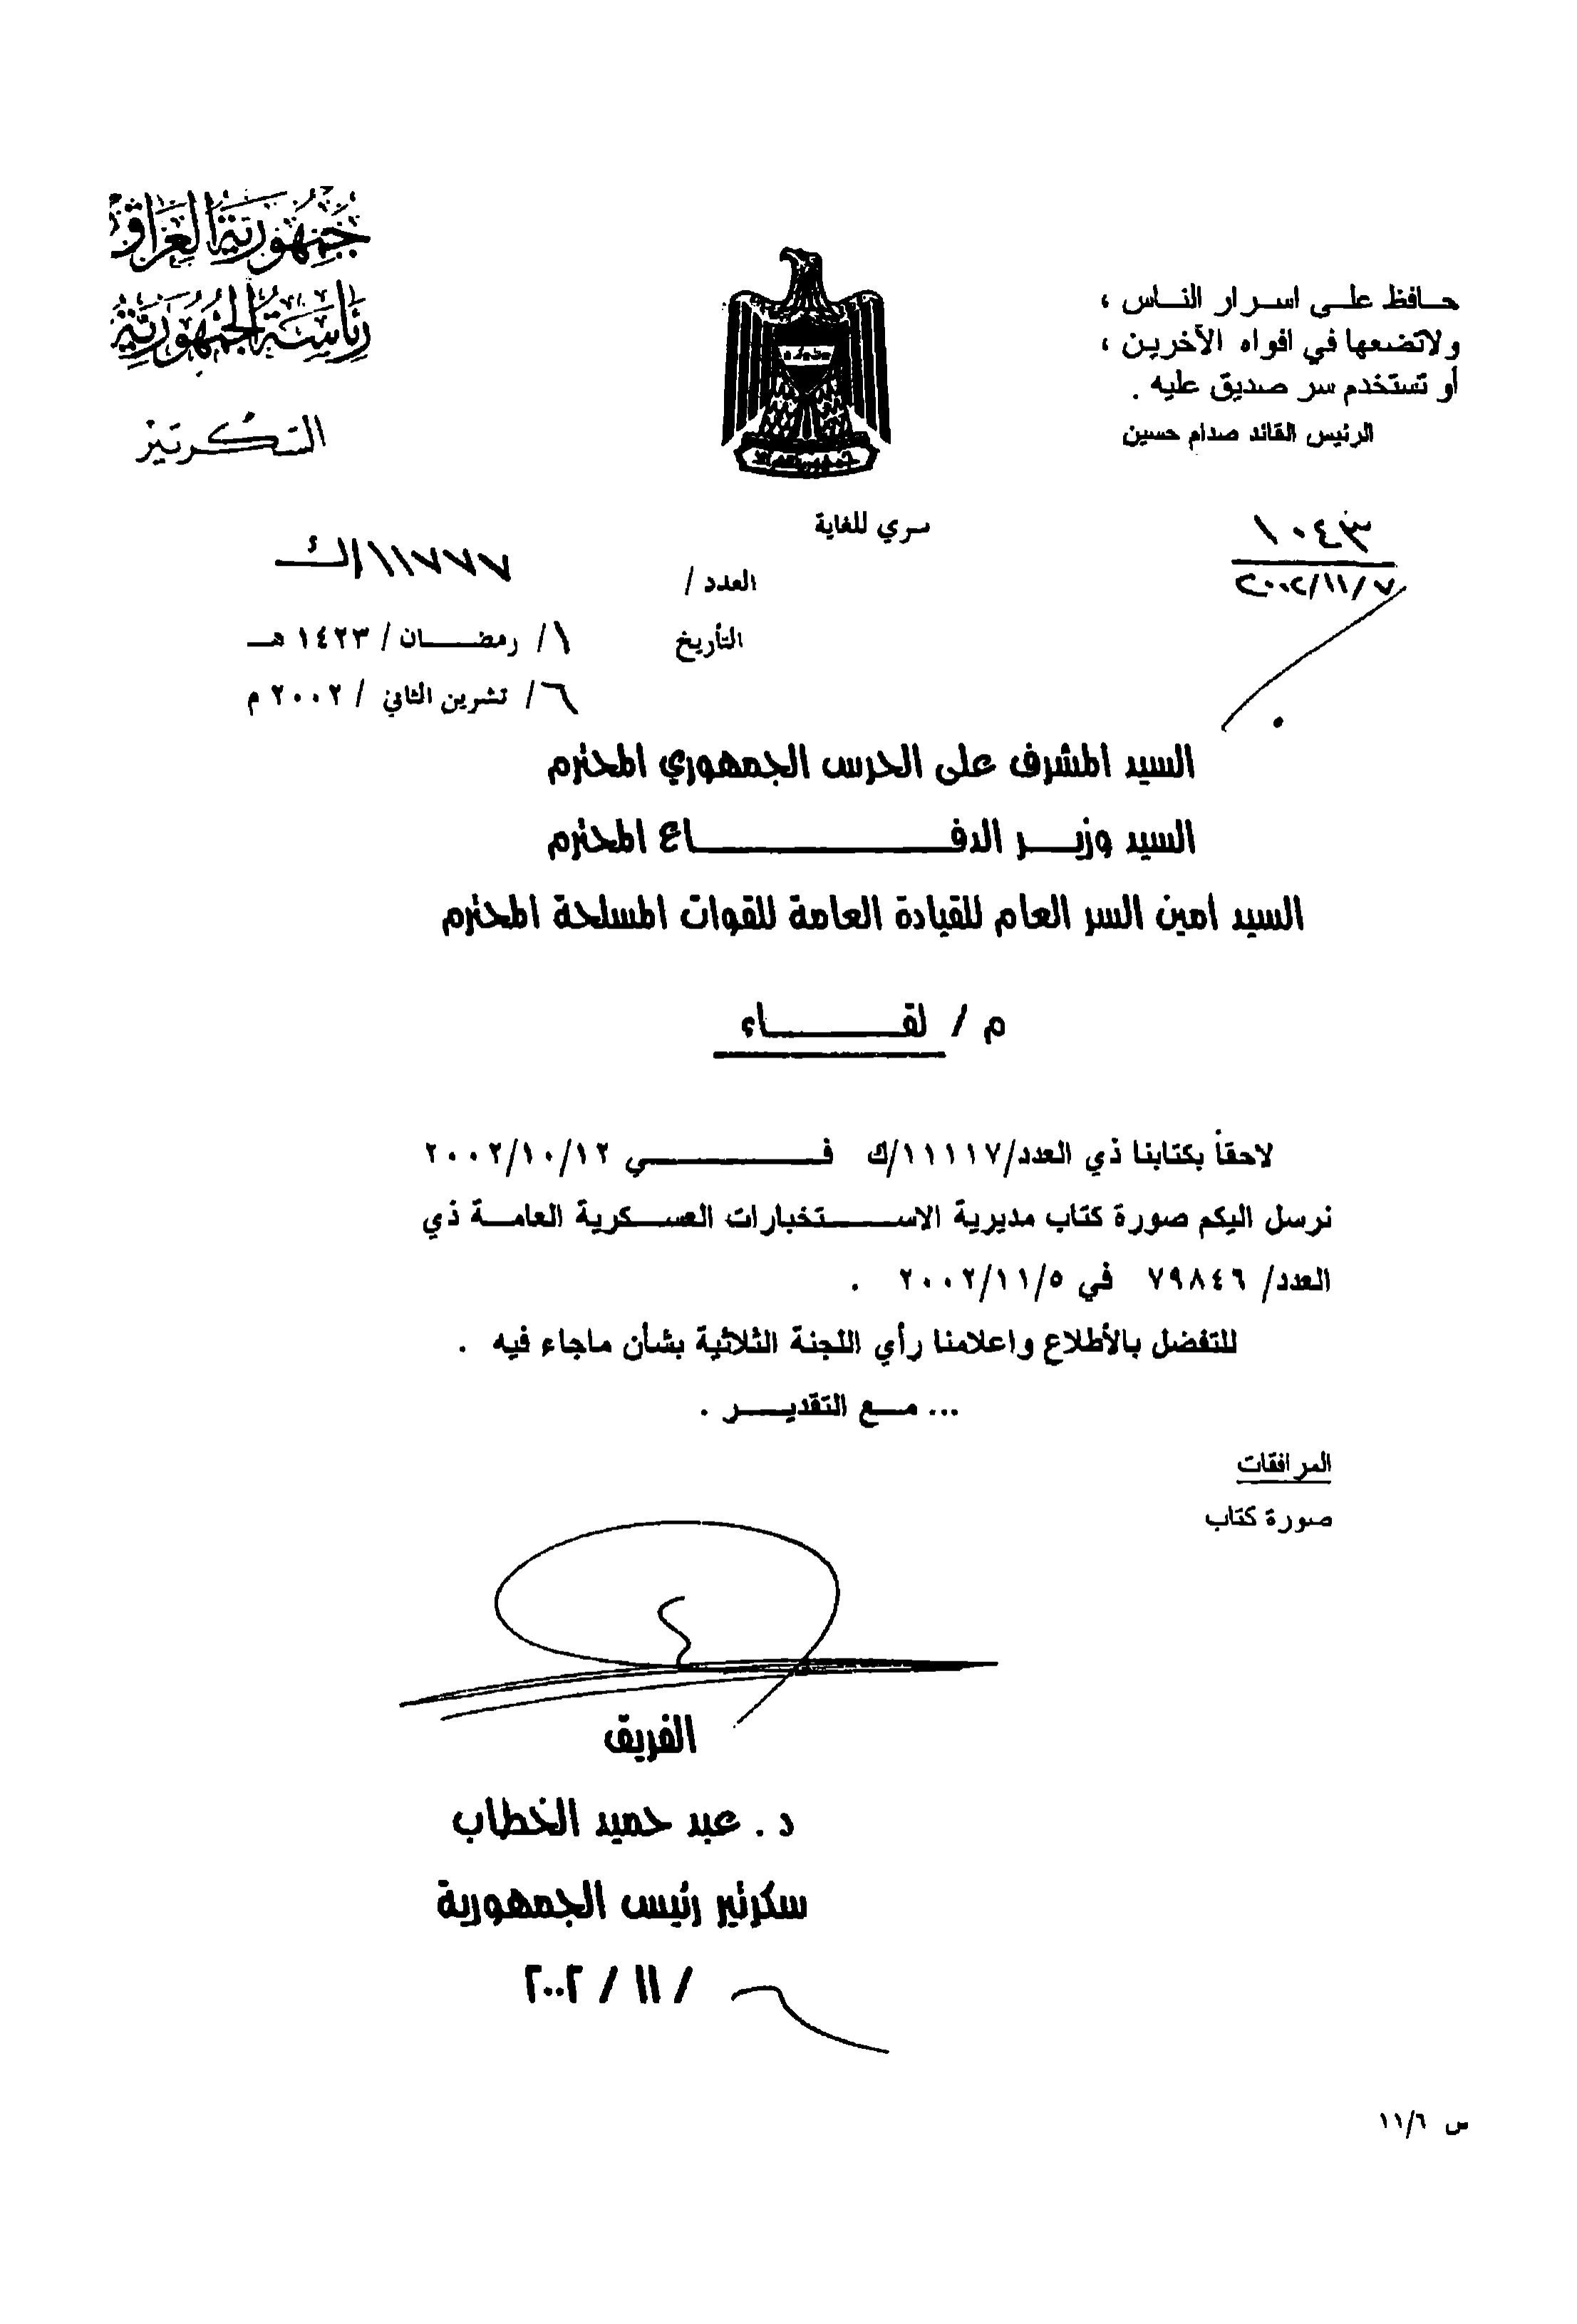 جمهورية العراق
رئاسة الجمهورية
السكرتير
حافظ على اسرار الناس ،
ولاتضعها في افواه الآخرين ،
أو تستخدم سر صديق عليه .
الرئيس القائد صدام حسين
سري للغاية
١٠٤٣
٢٠٠٢/١١/٧
العدد / ١١٧٧٧/ك
التأريخ ١/ رمضــــان / ١٤٢٣ هـــ
٦/ تشرين الثاني / ٢٠٠٢ م
السيد المشرف على الحرس الجمهوري المحترم
السيد وزيــر الدفـــــــــــاع المحترم
السيد امين السر العام للقيادة العامة للقوات المسلحة المحترم
م / لقـــــــاء
لاحقاً بكتابنا ذي العدد/١١١١٧/ك فـــــــــي ٢٠٠٢/١٠/١٢
نرسل اليكم صورة كتاب مديرية الاســـتخبارات العســكرية العامــة ذي
العدد/ ٧٩٨٤٦ في ٢٠٠٢/١١/٥ .
للتفضل بالأطلاع واعلامنا رأي اللجنة الثلاثية بشأن ماجاء فيه .
... مــع التقديــر .
المرافقات
صورة كتاب
الفريق
د . عبد حميد الخطاب
سكرتير رئيس الجمهورية
/ ١١ / ٢٠٠٢
س ١١/٦